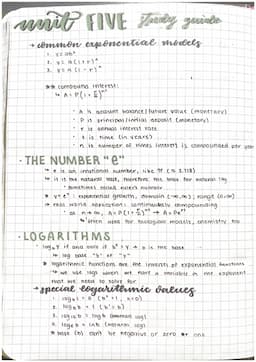 unit FIVE study guide
→ common exponential models
1. y = ab^x
2. y = A(1+r)^x
3. y = A(1-r)^x
** compound interest:
↳ A = P(1+r/n)^nt
· A is account balance/future value (monetary)
· P is principal/initial deposit (monetary)
· r is annual interest rate
· t is time (in years)
· n is number of times interest is compounded per year
· THE NUMBER "e"
→ e is an irrational number, like π (≈ 2.718)
↳ it is the natural base, therefore the base for natural log
· sometimes called euler's number
→ y = e^x : exponential growth, domain (-∞, ∞) range (0, ∞)
→ real world application: continuously compounding
as n → ∞, A = P(1+r/n)^nt → A = Pe^rt
↳ often used for biological models, chemistry too
· LOGARITHMS
log_b x if and only if b^y = x → b is the base
↳ log base "b" of
logarithmic functions are the inverse of exponential functions
↳ we use logs when we have a variable in the exponent
that we need to solve for
→ special logarithmic values
1. log_b 1 = 0 (b^0 = 1, b≠0)
2. log_b b = 1 (b^1 = b)
3. log_10 x = log x common log
4. log_e x = lnx (natural log)
* base (b) can't be negative or zero or one